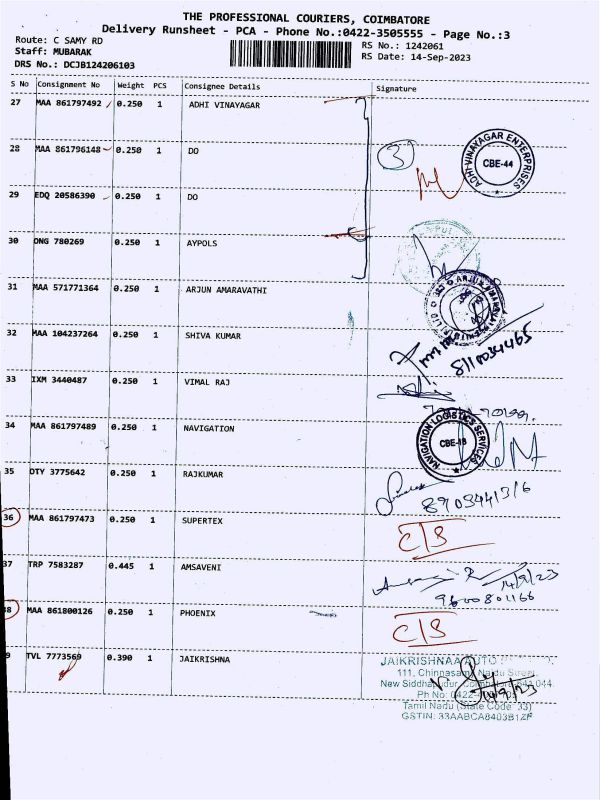 THE PROFESSIONAL COURIERS, COIMBATORE
Delivery Runsheet - PCA - Phone No.:0422-3505555 - Page No.:3
Route: C SAMY RD
RS No.: 1242061
Staff: MUBARAK
RS Date: 14-Sep-2023
DRS No.: DCJB124206103
S No Consignment No Weight PCS Consignee Details Signature
27 MAA 861797492 0.250 1 ADHI VINAYAGAR
28 MAA 861796148 0.250 1 DO
3
ADHI VINAYAGAR ENTERPRISES
CBE-44
29 EDQ 20586390 0.250 1 DO
30 ONG 780269 0.250 1 AYPOLS
31 MAA 571771364 0.250 1 ARJUN AMARAVATHI
32 MAA 104237264 0.250 1 SHIVA KUMAR
33 IXM 3440487 0.250 1 VIMAL RAJ
34 MAA 861797489 0.250 1 NAVIGATION
NAVIGATION LOGISTICS SERVICES
CBE-18
35 OTY 3775642 0.250 1 RAJKUMAR
36 MAA 861797473 0.250 1 SUPERTEX
C/S
37 TRP 7583287 0.445 1 AMSAVENI
14/9/23
9600801166
38 MAA 861800126 0.250 1 PHOENIX
C/S
9 TVL 7773569 0.390 1 JAIKRISHNA
JAIKRISHNAA AUTO
111, Chinnasamy Naidu Street,
New Siddhapudur, Coimbatore-641 044.
Ph No: 0422-
Tamil Nadu (State Code: 33)
GSTIN: 33AABCA8403B1ZF